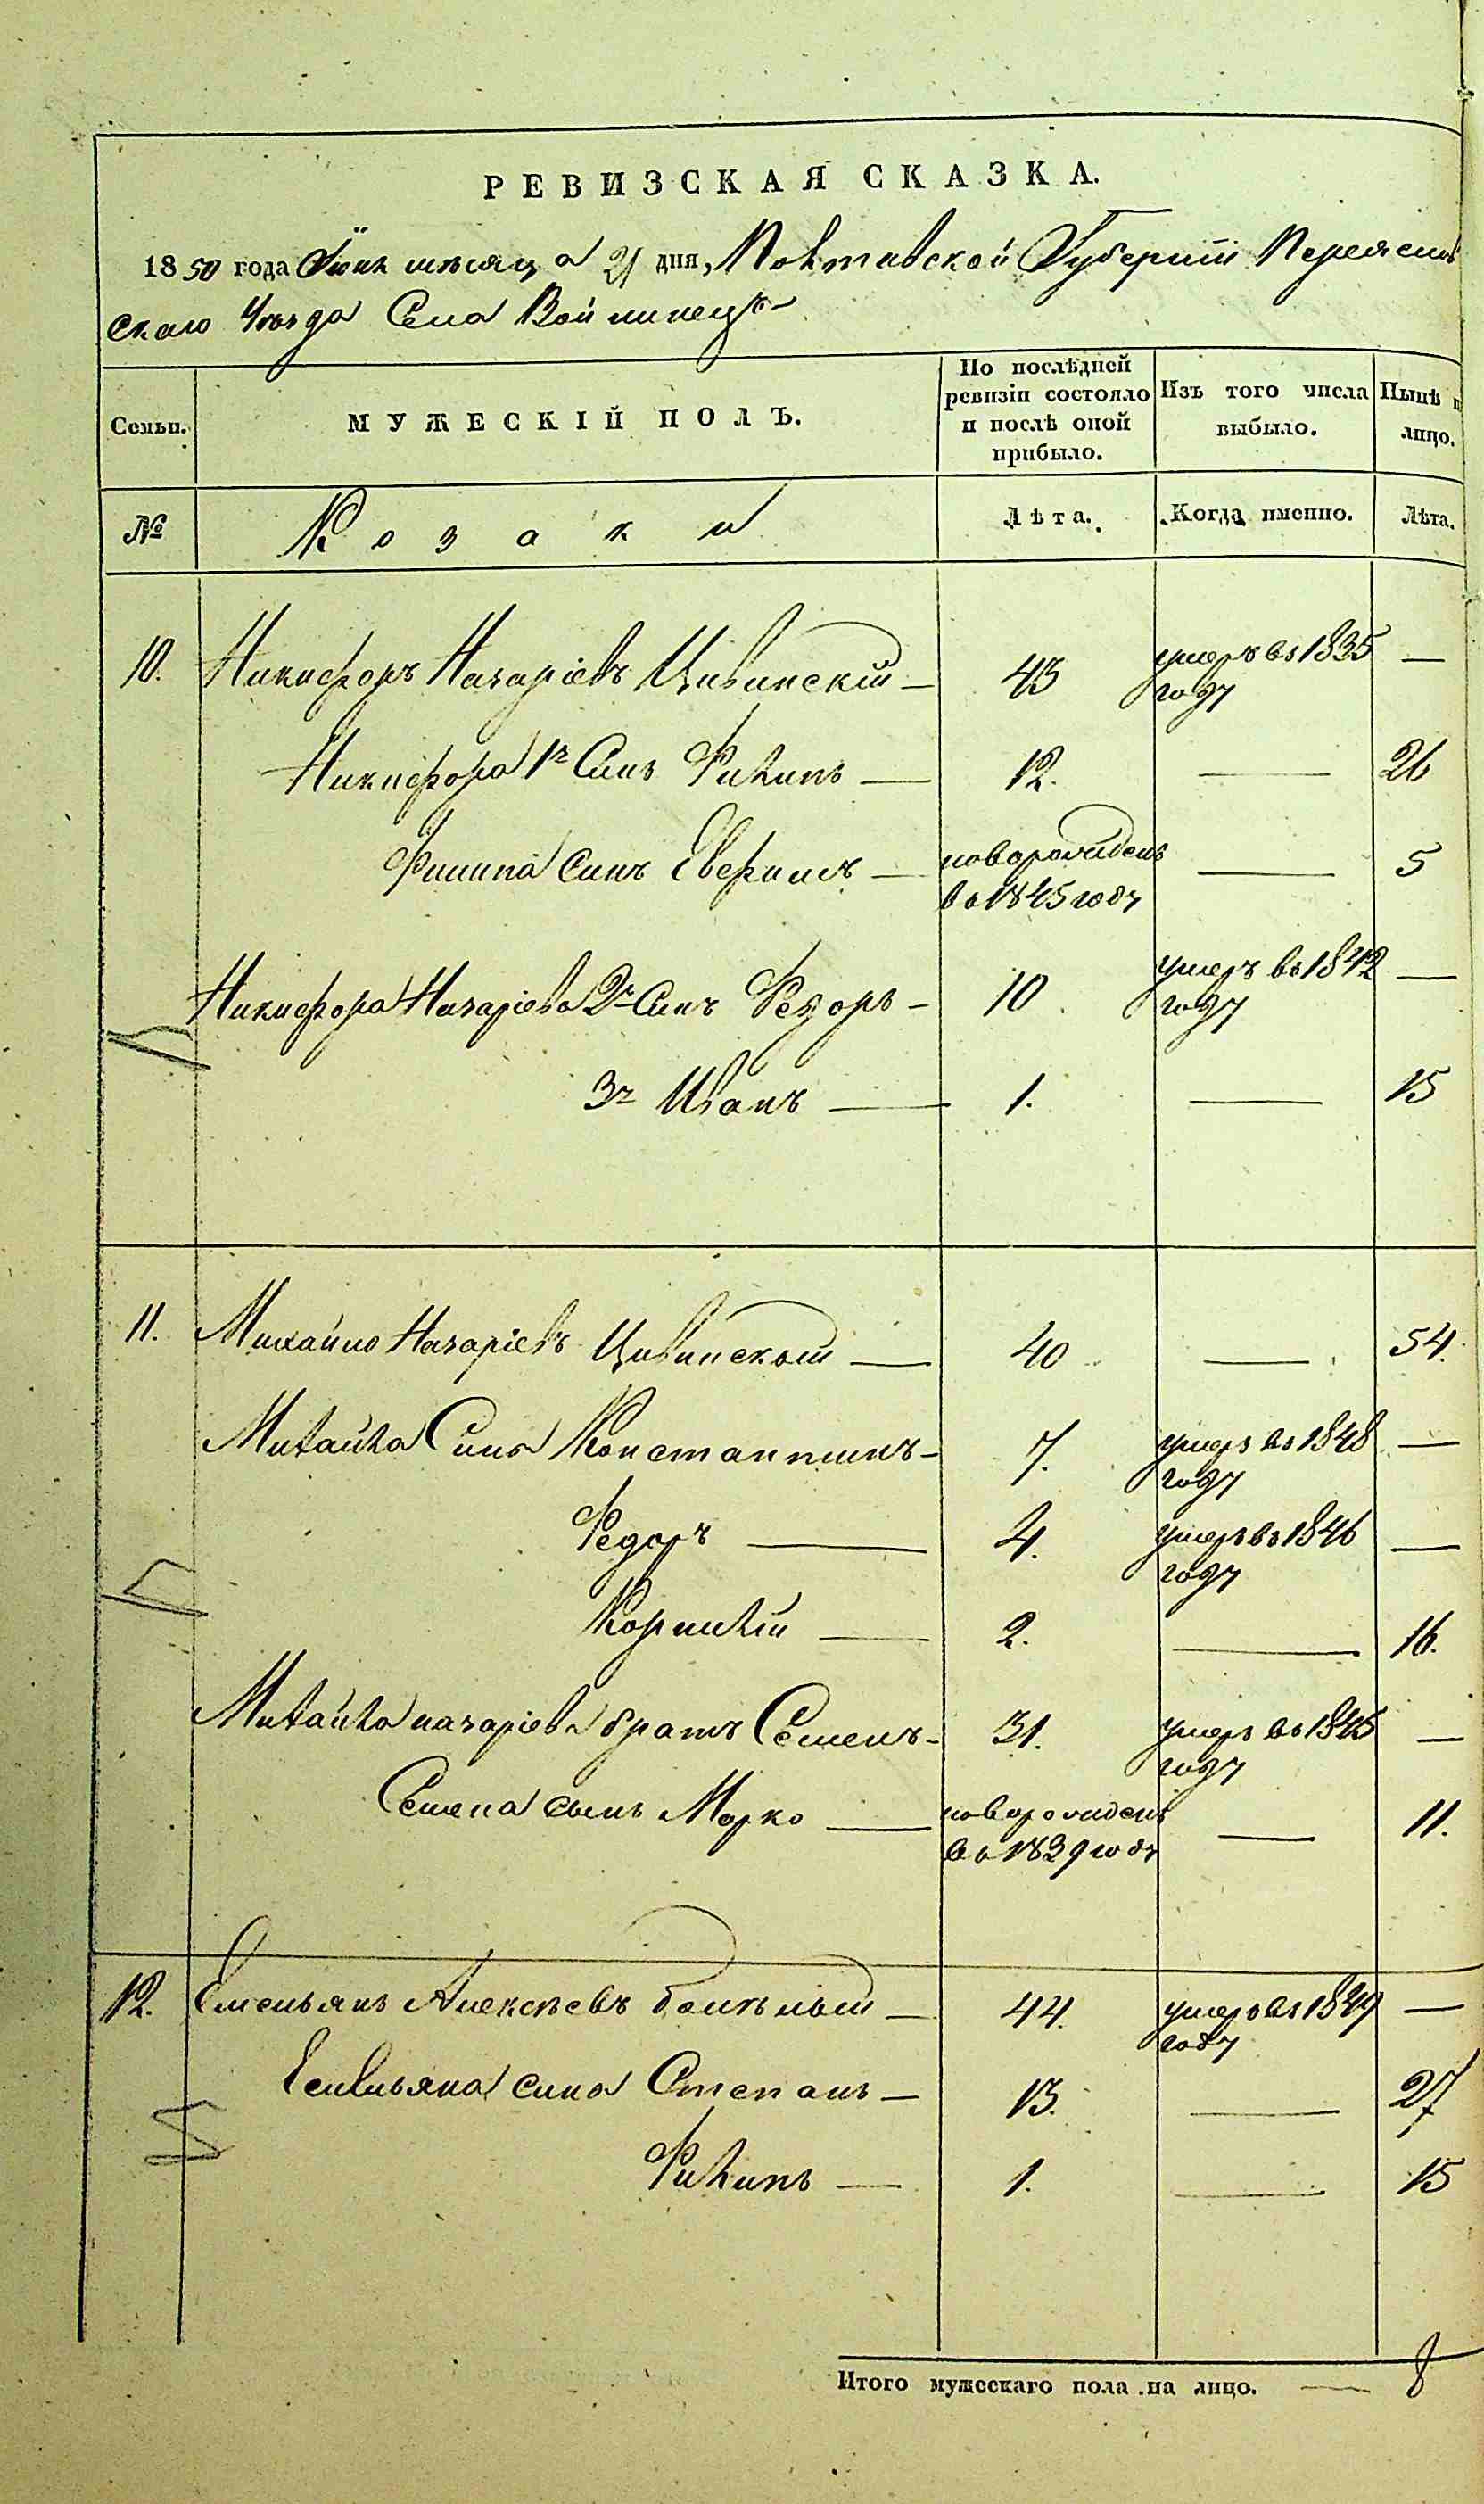 РЕВИЗСКАЯ СКАЗКА.
1850 года Июнь мѣсяца 21 дня, Полтавской Губерніи Переяслав
скаго Уѣзда Села Войтинецъ
Семьи. МУЖЕСКІЙ ПОЛЪ. По послѣдней ревизіи состояло и послѣ оной прибыло. Изъ того числа выбыло. Нынѣ н лицо.
№ Козаки Лѣта. Когда именно. Лѣта.
10. Никифоръ Назаріевъ Цивинскій 43 умеръ въ 1835 году —
Никифора 1й Синъ Филипъ 12. — 26
Филипа синъ Евфимъ новорожденъ въ 1845 году — 5
Никифора Назаріева 2й Синъ Федоръ 10 умеръ въ 1842 году —
3й Иванъ 1. — 15
11. Михайло Назаріевъ Цивинскый 40 — 54.
Михайла Сина Константинъ 7. умеръ въ 1848 году —
Федоръ 4. умеръ въ 1846 году —
Корнилій 2. — 16.
Михайла назаріева братъ Семенъ 31. умеръ въ 1845 году —
Семена сынъ Марко новорожденъ въ 1839 году — 11.
12. Емельянъ Алексѣевъ 44. умеръ въ 1849 году —
Емельяна сина Степанъ 13. — 27
Филипъ 1. — 15
Итого мужескаго пола на лицо. — 8